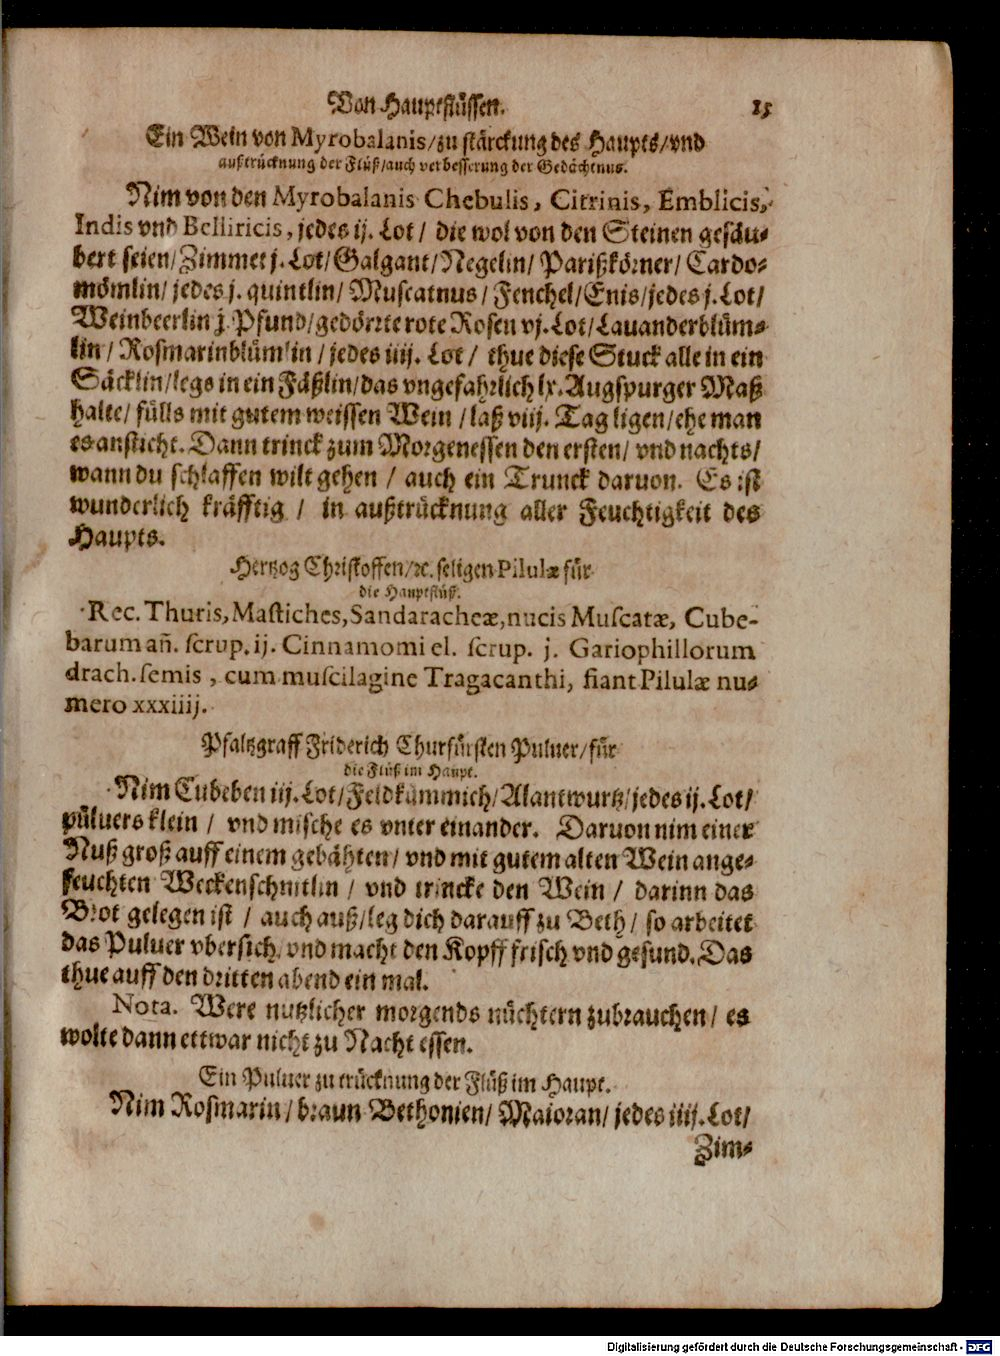 Von Hauptflüssen. 15
Ein Wein von Myrobalanis/zu stärckung des Haupts/vnd
außtrücknung der Flüß/auch verbesserung der Gedächtnus.
Nim von den Myrobalanis Chebulis, Citrinis, Emblicis,
Indis vnd Belliricis, jedes ij. Lot/ die wol von den Steinen gesäu-
bert seien/Zimmet j. Lot/Galgant/Negelin/ Parißkörner/ Cardo-
mömlin/ jedes j. quintlin/ Muscatnus/ Fenchel/Enis/jedes j. Lot/
Weinbeerlin j. Pfund/gedörrte rote Rosen vj. Lot/Lauanderblüm-
lin/ Rosmarinblümlin/ jedes iiij. Lot/ thue diese Stuck alle in ein
Säcklin/legs in ein Fäßlin/das vngefahrlich lx. Augspurger Maß
halte/ fülls mit gutem weissen Wein/ laß viij. Tag ligen/ehe man
es ansticht. Dann trinck zum Morgenessen den ersten/ vnd nachts/
wann du schlaffen wilt gehen/ auch ein Trunck daruon. Es ist
wunderlich kräfftig/ in außtrücknung aller Feuchtigkeit des
Haupts.
Hertzog Christoffen/ꝛc. seligen Pilulæ für
die Hauptflüß.
Rec. Thuris, Mastiches, Sandaracheæ, nucis Muscatæ, Cube-
barum añ. scrup. ij. Cinnamomi el. scrup. j. Gariophillorum
drach. semis, cum muscilagine Tragacanthi, fiant Pilulæ nu-
mero xxxiiij.
Pfaltzgraff Friderich Churfürsten Puluer/für
die Flüß im Haupt.
Nim Cubeben iij. Lot/Feldkümmich/Alantwurtz/jedes ij. Lot/
pülvers klein/ vnd mische es vnter einander. Daruon nim einer
Nuß groß auff einem gebähten/ vnd mit gutem alten Wein ange-
feuchten Weckenschnitlin/ vnd trincke den Wein/ darinn das
Brot gelegen ist/ auch auß/leg dich darauff zu Beth/ so arbeitet
das Puluer vbersich/ vnd macht den Kopff frisch vnd gesund. Das
thue auff den dritten abend ein mal.
Nota. Were nutzlicher morgends nüchtern zubrauchen/ es
wolte dann ettwar nicht zu Nacht essen.
Ein Puluer zu trücknung der Flüß im Haupt.
Nim Rosmarin/ braun Bethonien/ Maioran/ jedes iiij. Lot/
Zim-
Digitalisierung gefördert durch die Deutsche Forschungsgemeinschaft - DFG